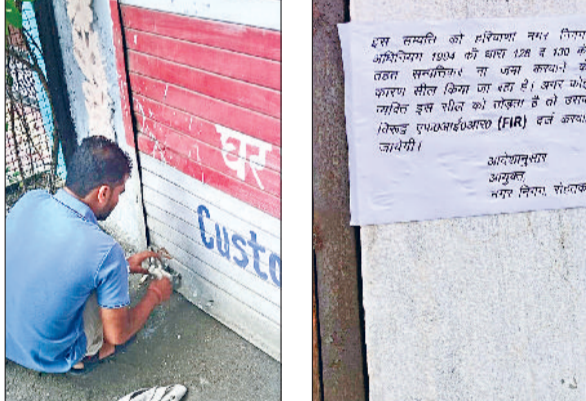 घर
Custo
इस सम्पत्ति को हरियाणा नगर निगम
अधिनियम 1994 की धारा 128 व 130 के
तहत सम्पत्तिकर ना जमा करवाने के
कारण सील किया जा रहा है। अगर कोई
व्यक्ति इस सील को तोड़ता है तो उसके
विरूद्ध एफ0आई0आर0 (FIR) दर्ज करवाई
जायेगी।
आदेशानुसार
आयुक्त,
नगर निगम, रोहतक